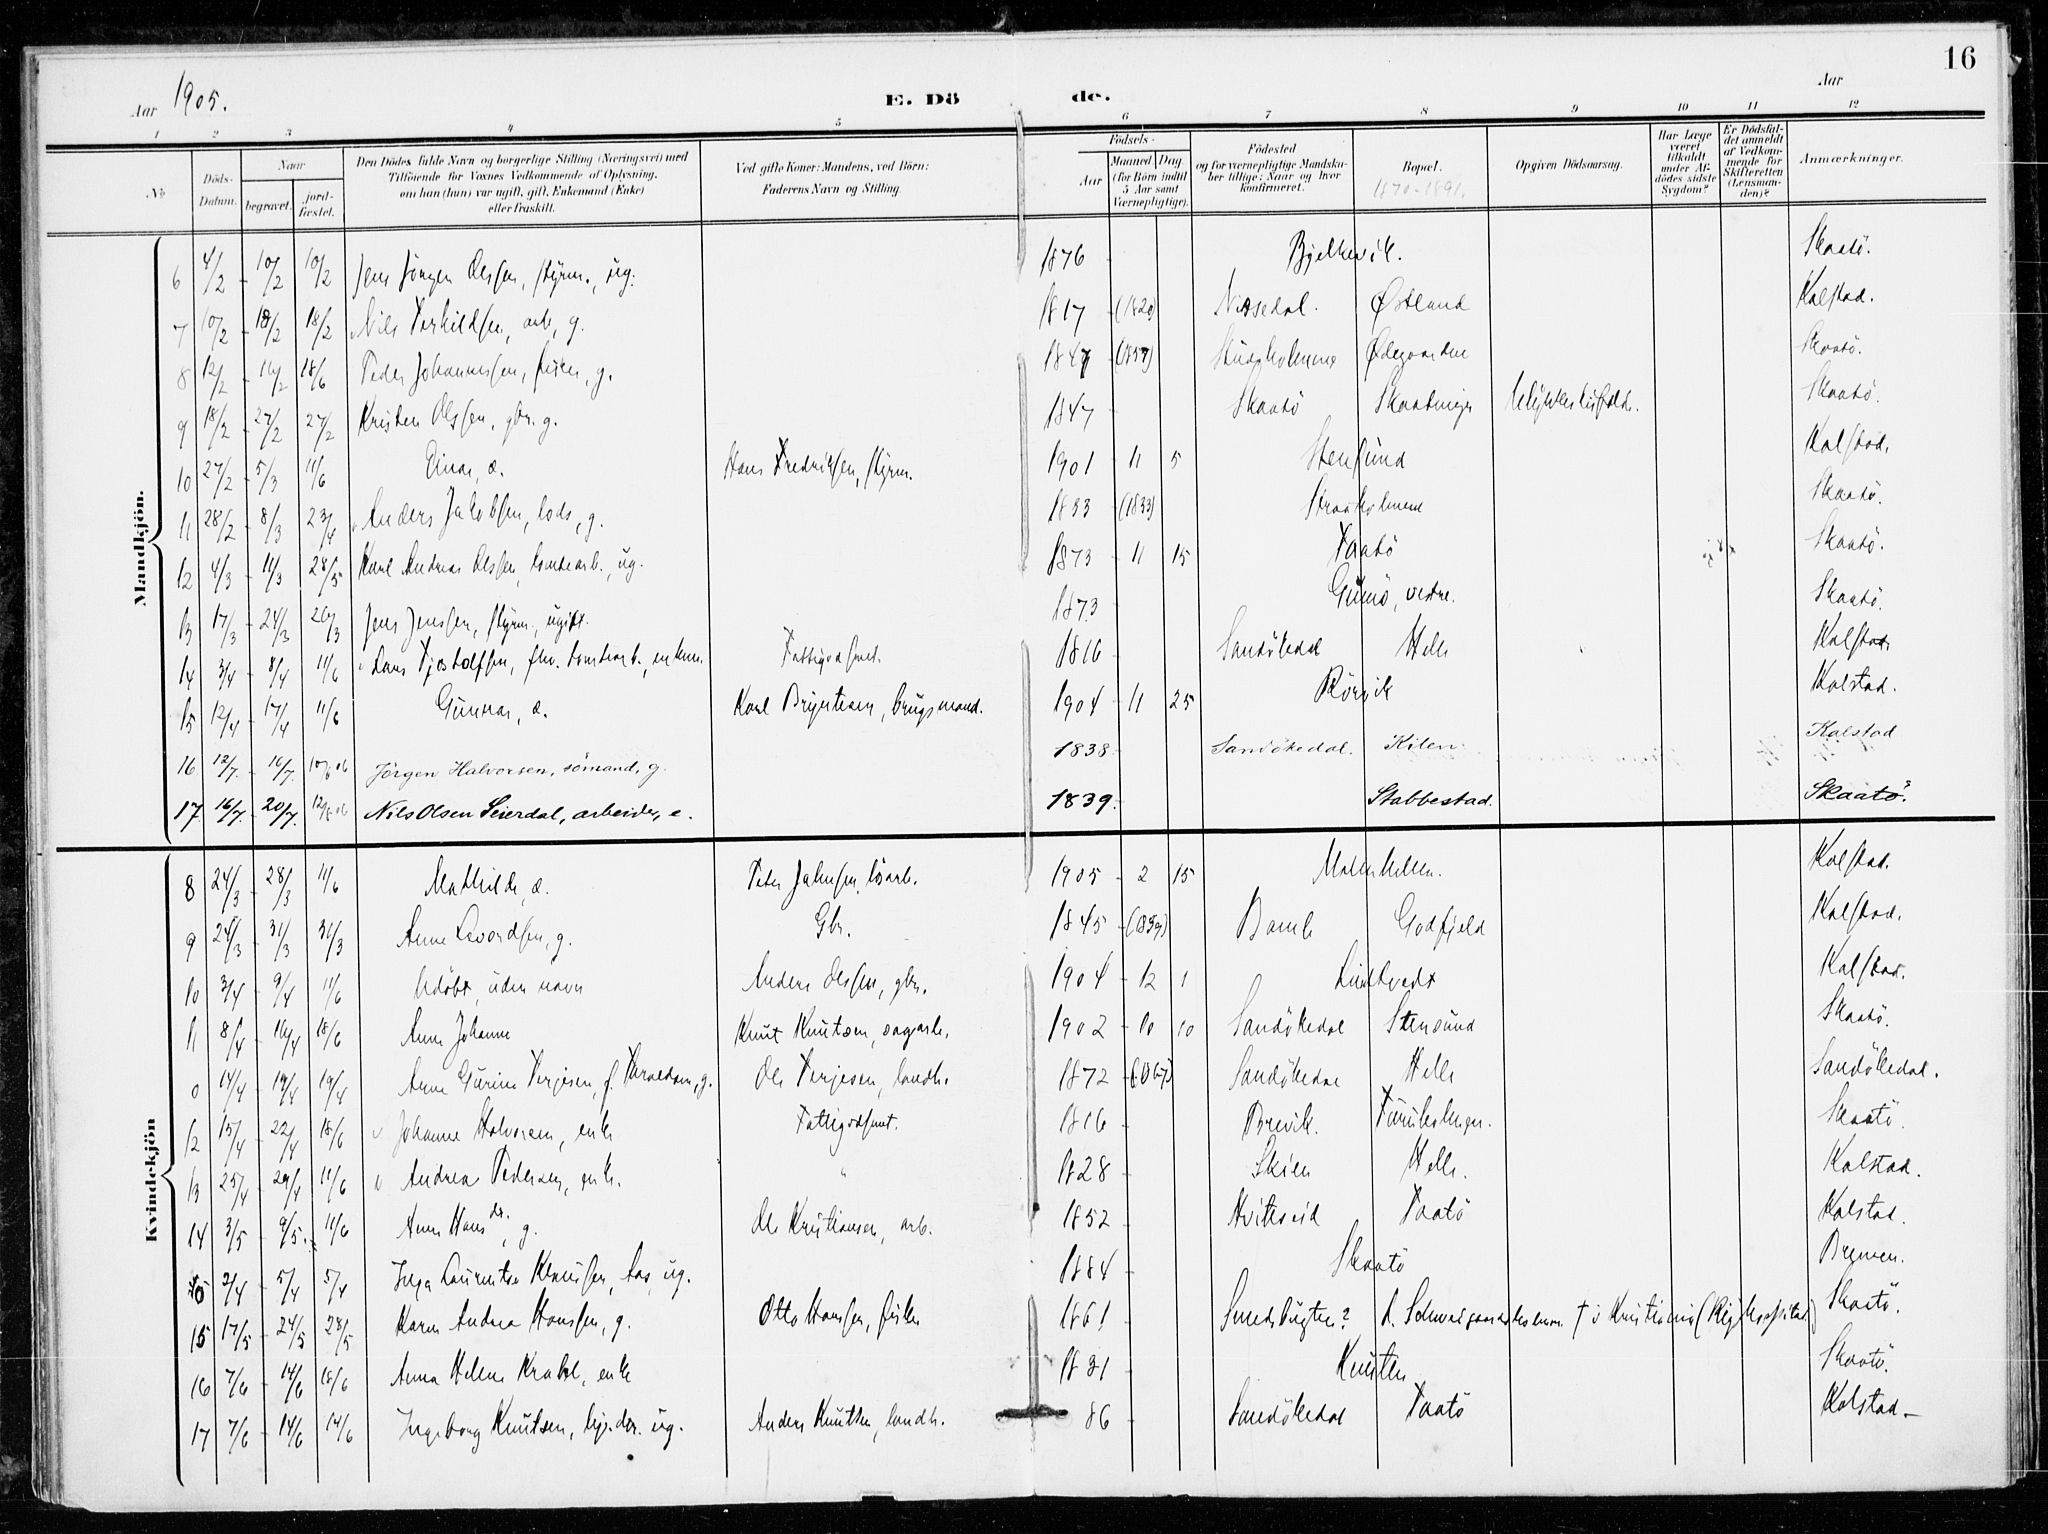 16
Aar 1905.
E. Dö de.
Aar
1 2 3 4 5 6 7 8 9 10 11 12
No
Döds-Datum.
Naar
begravet.
jord-fæstet.
Den Dödes fulde Navn og borgerlige Stilling (Næringsvei) med Tilföiende for Voxnes Vedkommende af Oplysning, om han (hun) var ugift, gift, Enkemand (Enke) eller fraskilt.
Ved gifte Koner: Mandens, ved Börn: Faderens Navn og Stilling.
Födsels-
Aar
Maaned (for Börn indtil 5 Aar samt Værnepligtige).
Dag
Födested og for værnepligtige Mandskaber tillige: Naar og hvor konfirmeret.
Bopæl.
1870-1891.
Opgiven Dödsaarsag.
Har Læge været tilkaldt under Afdödes sidste Sygdom?
Er Dödsfaldet anmeldt af Vedkommende for Skifteretten (Lensmanden)?
Anmærkninger.
Mandkjön.
6 4/2 - 10/2 10/2 Jens Jörgen Olssen, styrm., ug. 1876 Bjelkevik. Skaatö.
7 10/2 - 18/2 18/2 Nils Torkildsen, arb, g. 1817 (1820) Nissedal. Østlund Kalstad.
8 12/2 - 16/2 18/6 Peder Johannessen, fisker, g. 1847 (1857) Ødegaarden Skaatö.
9 18/2 - 27/2 27/2 Kristen Olssen, gbr. g. 1847 Skaatö Skaatö.
10 27/2 - 5/3 11/6 Einar, æ. Hans Fredriksen, styrm. 1901 11 5 Stensund Kalstad.
11 28/2 - 8/3 23/4 Anders Jakobsen, lods, g. 1833 (1833) Straaholmene Skaatö.
12 4/3 - 11/3 28/5 Karl Andreas Olssen, tomtearb., ug. 1873 11 15 Taatö Skaatö.
13 17/3 - 24/3 26/3 Jens Jenssen, styrm., ugift. 1873 Gumö, vestre. Skaatö.
14 3/4 - 8/4 11/6 Lars Tjostolfsen, fhv. tomtearb., enkem. Fattigvæsnet. 1816 Sandökedal Helle Kalstad.
15 12/4 - 17/4 11/6 Gunnar, æ. Karl Bryntesen, brugsmand. 1904 11 25 Rörvik Kalstad.
16 12/7. - 16/7. 10/6 06 Jörgen Halvorsen, sömand, g. 1838. Sandökedal. Kilen. Kalstad
17. 16/7. - 20/7. 12/8 06 Nils Olsen Seierdal, arbeider, e. 1839. Stabbestad. Skaatö.
Kvindekjön
8 24/3 - 28/3 11/6 Mathilde, æ. Peter Johnsen, lösarb. 1905 2 15 Kalstad.
9 24/3 - 31/3 31/3 Anne Davordsen, g. Gbr. 1845 (1839) Bamle Godfjeld Kalstad.
10 3/4 - 9/4 11/6 Udöbt, uden navn Anders Olssen, gbr. 1904 12 1 Lindtvedt Kalstad.
11 8/4 - 16/4 18/6 Anne Johanne Knut Knutsen, sagarb. 1902 10 10 Sandökedal Stensund Skaatö.
0 14/4 - 19/4 19/4 Anne Gurine Terjesen, f. Haraldsen, g. Ole Terjesen, landh. 1872 (1867) Sandökedal Helle Sandökedal.
12 15/4 - 22/4 18/6 Johanne Halvorsen, enke Fattigvæsnet. 1816 Brevik. Skaatö.
13 25/4 - 29/4 11/6 Andrea Pedersen, enke. " 1828 Skien Helle. Kalstad.
14 3/5 - 9/5. 11/6 Anne Hansdr., g. Ole Kristiansen, arb. 1852 Hvitseid Taatö Kalstad.
0 2/4 - 5/4 5/4 Inga Lauretse Klausen, tas, ug. 1884 Skaatö Bremen.
15 17/5 - 24/5 28/5 Karen Andrea Hanssen, g. Otto Hanssen, fisker 1861 Smedsbugten? † i Kristiania (Rigshospitalet) Skaatö.
16 7/6 - 14/6 18/6 Anna Helene Krahl, enke 1831 Knipen Skaatö.
17 7/6 - 14/6 14/6 Ingeborg Knutsen, tj. dr. ug. Anders Knutsen, landh. 86 Sandökedal Taatö Kalstad